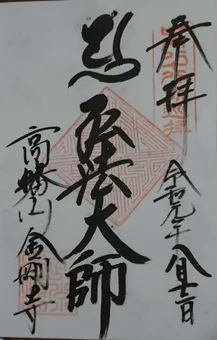 奉拝
令和元年八月十二日
弘法大師
高幡山
金剛寺